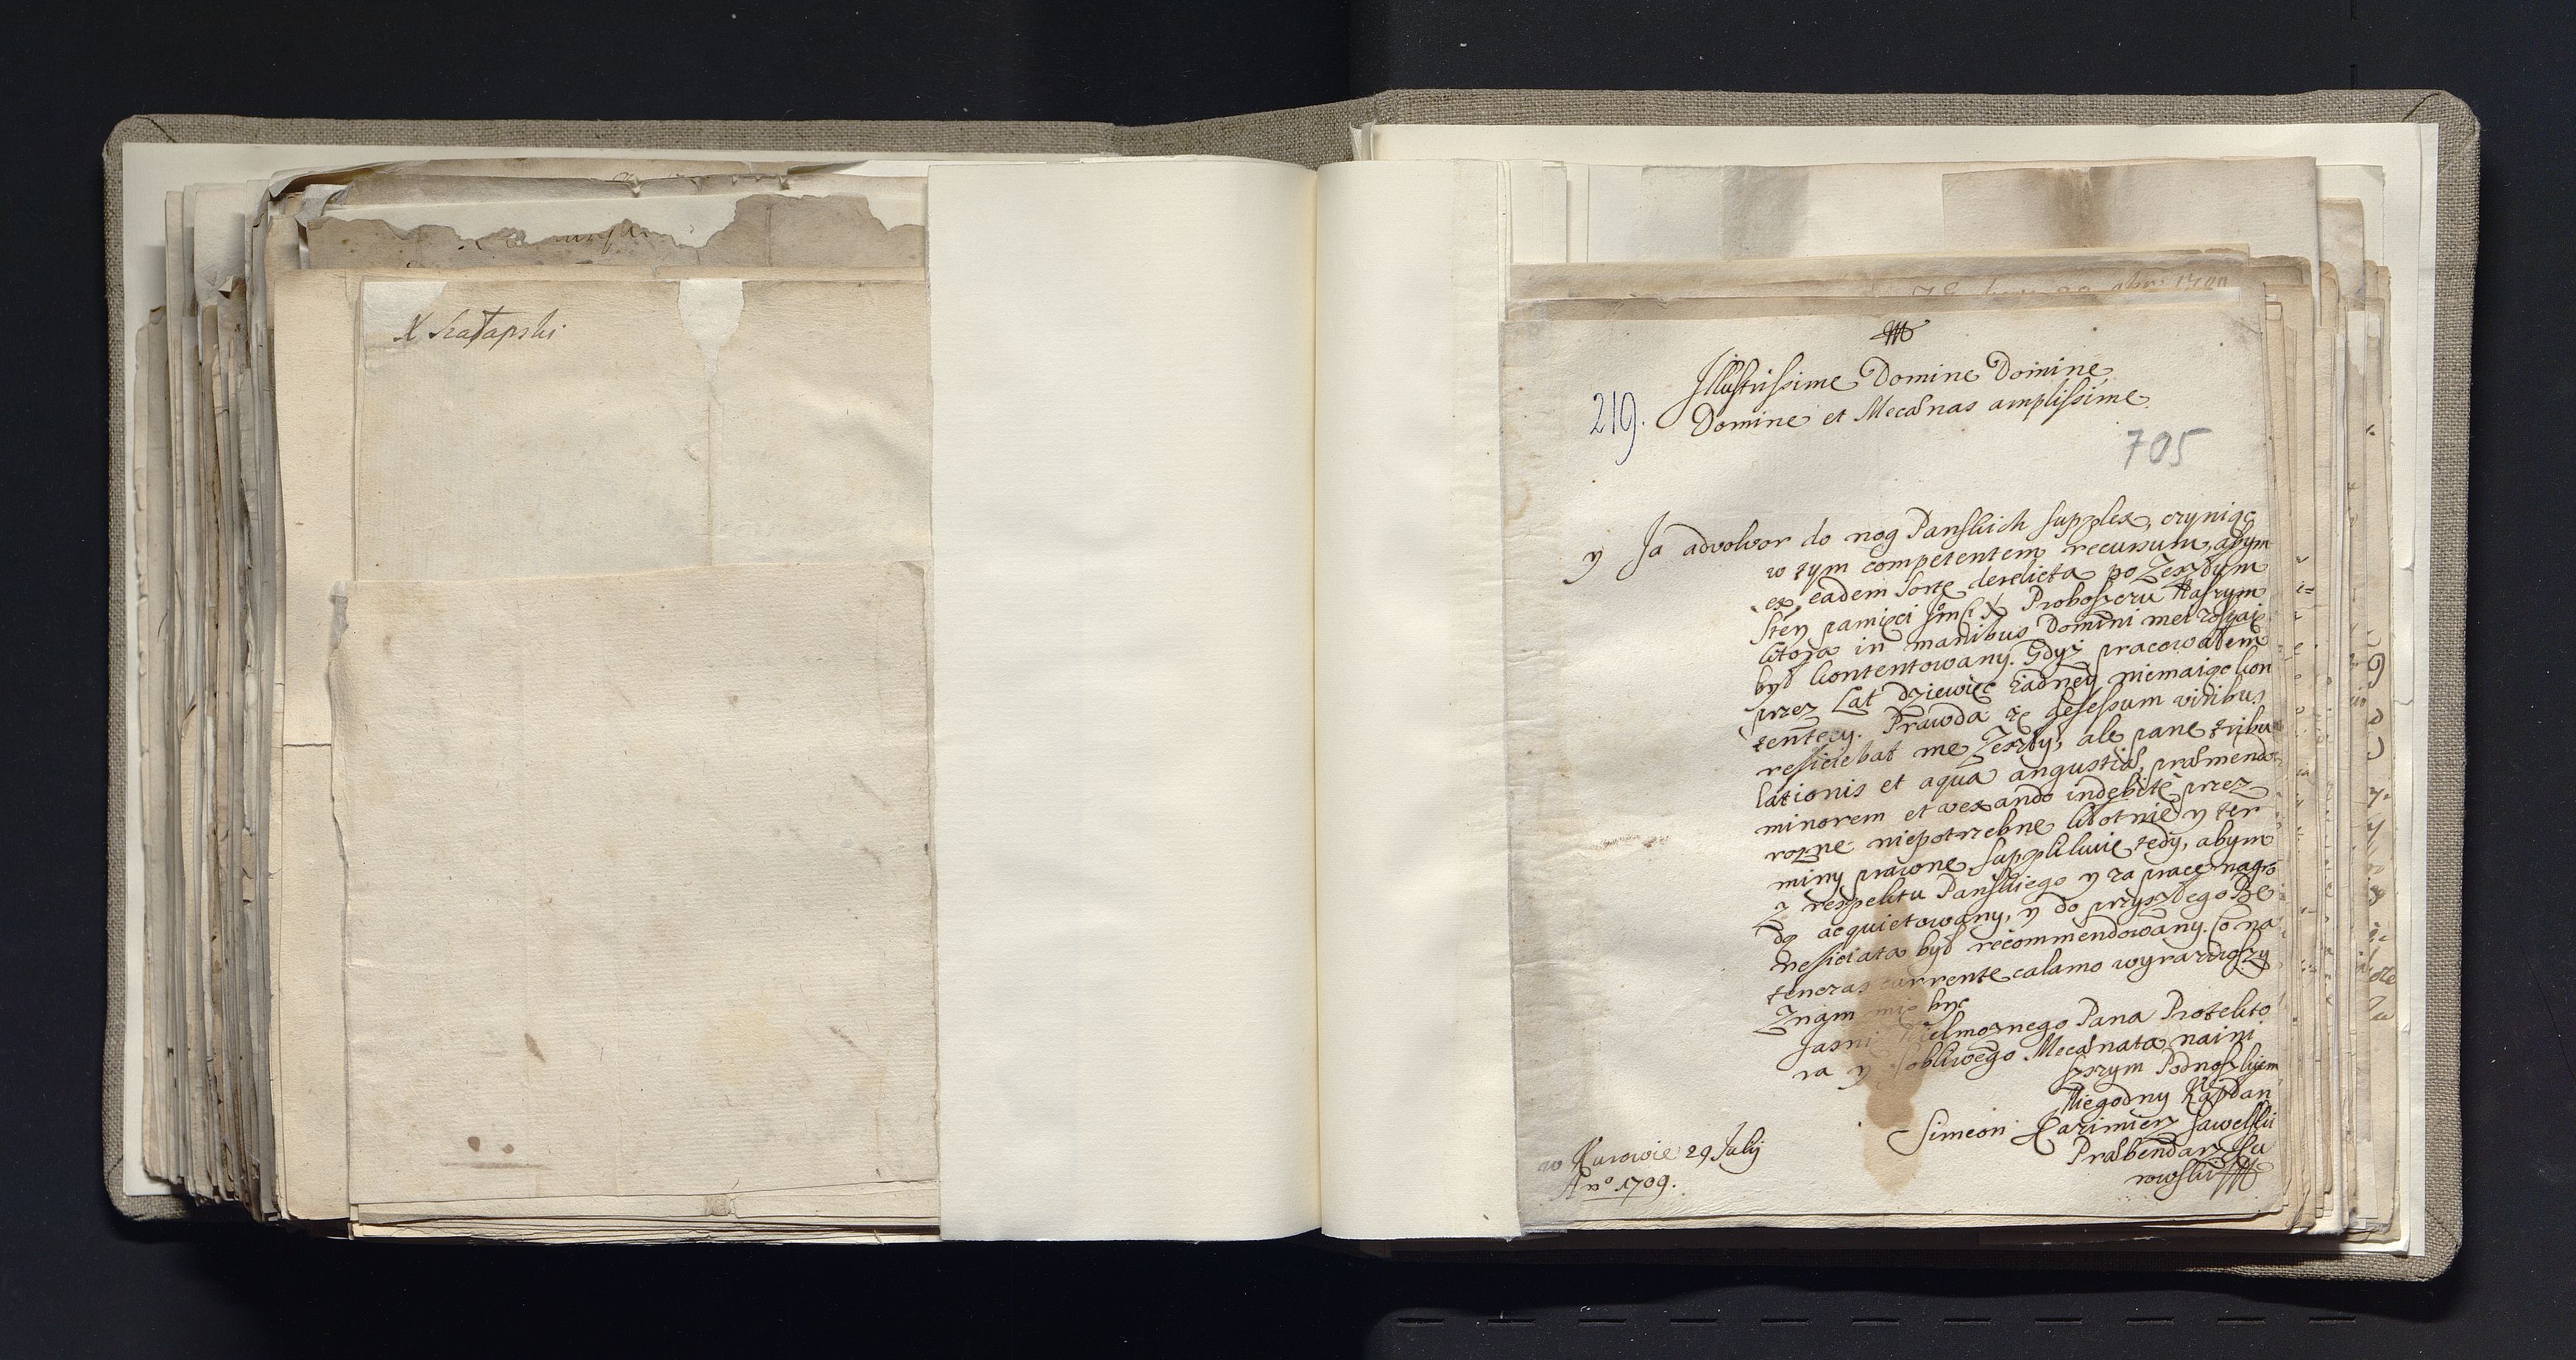 X Szałapski
219.
Illustrissime Domine Domine
Domine et Mecænas amplissime
705
y Ja advolvor do nog Panskich supplex, czyniąc
w tym competentem recursum, abym
ex eadem sorte derelicta po Zeszłym
Stey pamięci Jmſci X Proboszczu Naszym
in manibus Domini mei
był kontentowany. Gdyz pracowałem
przez Lat dziewięc zadney niemaiąc kon
tentecy. Prawda ze defessum viribus
reficiebat me Zeszły, ale pane tribu
lationis et aqua angustiæ, præmendo
minorem et vexando indebitè przez
rozne niepotrzebne kłotnie y ter
miny prawne. Supplikuie tedy, abym
z respektu Panskiego y za pracę nagro
dą acquietowany, y do przyszłego Be
neficiata był recommendowany. Co na
tenczas currente calamo wyraziwszy
Znam się byc
Jasnie Wielmoznego Pana Protekto
ra y Mecænata naini
szszym Podnoszkiem
Niegodny Kapłan
Simeon Kazimierz Sawelski
Præbendarz Ku
rowski
w Kurowie 29 July
Aº 1709.